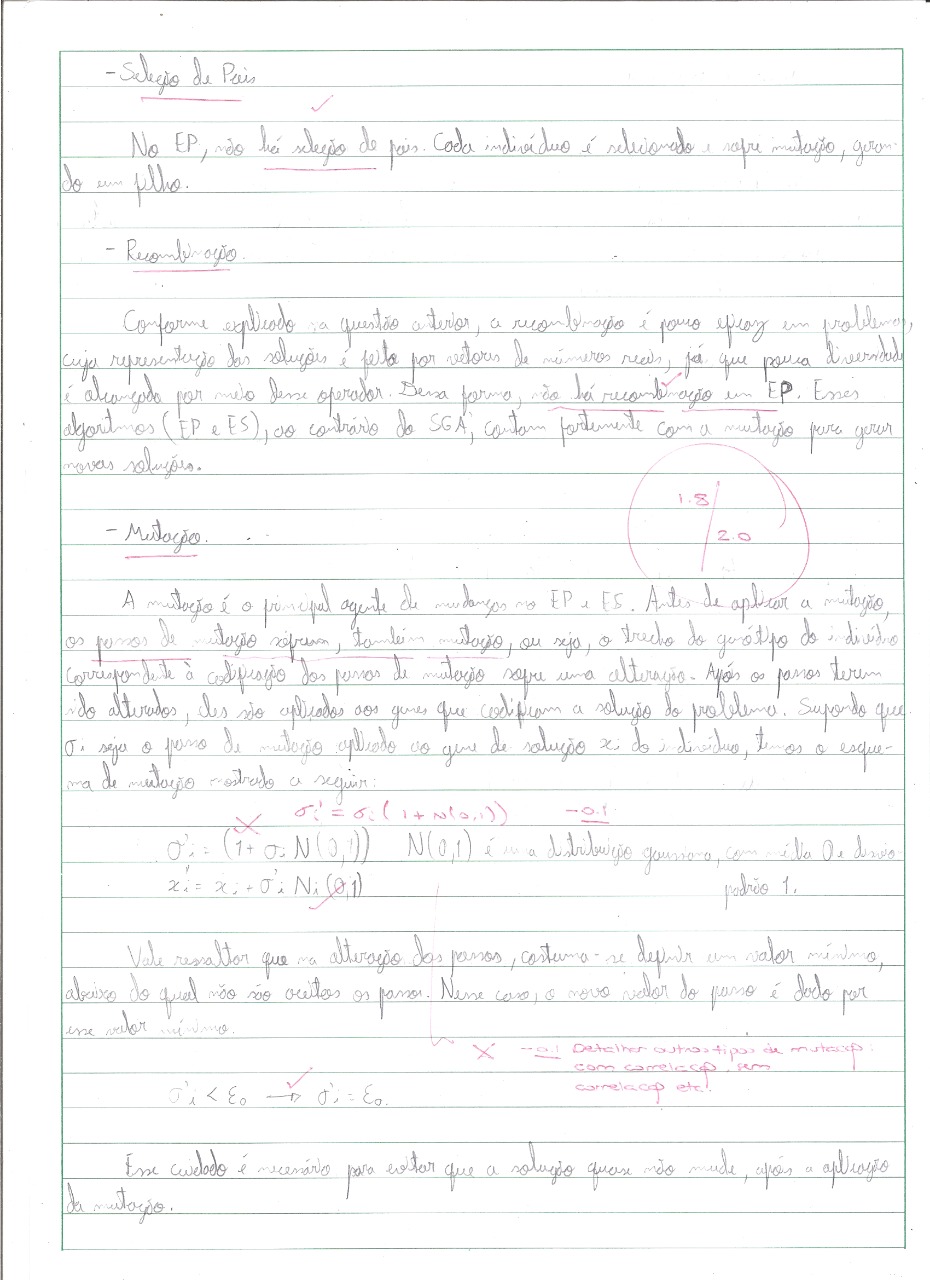 - Seleção de Pais
No EP, não há seleção de pais. Cada indivíduo é selecionado e sofre mutação, geran-
do um filho.
- Recombinação.
Conforme explicado na questão anterior, a recombinação é pouco eficaz em problemas,
cuja representação das soluções é feita por vetores de números reais, já que pouca diversidade
é alcançada por meio desse operador. Dessa forma, não há recombinação em EP. Esses
algoritmos (EP e ES), ao contrário do SGA, contam fortemente com a mutação para gerar
novas soluções.
1.8
- Mutação.
2.0
A mutação é o principal agente de mudanças no EP e ES. Antes de aplicar a mutação,
os passos de mutação sofrem, também mutação, ou seja, o trecho do genótipo do indivíduo
correspondente à codificação dos passos de mutação sofre uma alteração. Após os passos terem
sido alterados, eles são aplicados aos genes que codificam a solução do problema. Supondo que
σi seja o passo de mutação aplicado ao gene de solução xi do indivíduo, temos o esque-
ma de mutação mostrado a seguir:
σi' = σi (1 + N(0,1)) -0.1
σ'i = (1 + σi N(0,1)) N(0,1) é uma distribuição gaussiana, com média 0 e desvio
x'i = xi + σ'i Ni(0,1) padrão 1.
Vale ressaltar que na alteração dos passos, costuma-se definir um valor mínimo,
abaixo do qual não são aceitos os passos. Nesse caso, o novo valor do passo é dado por
esse valor mínimo.
X -0.1 Detalhar outros tipos de mutação:
com correlação, sem
correlação etc!
σ'i < ε0 → σ'i = ε0.
Esse cuidado é necessário para evitar que a solução quase não mude, após a aplicação
da mutação.